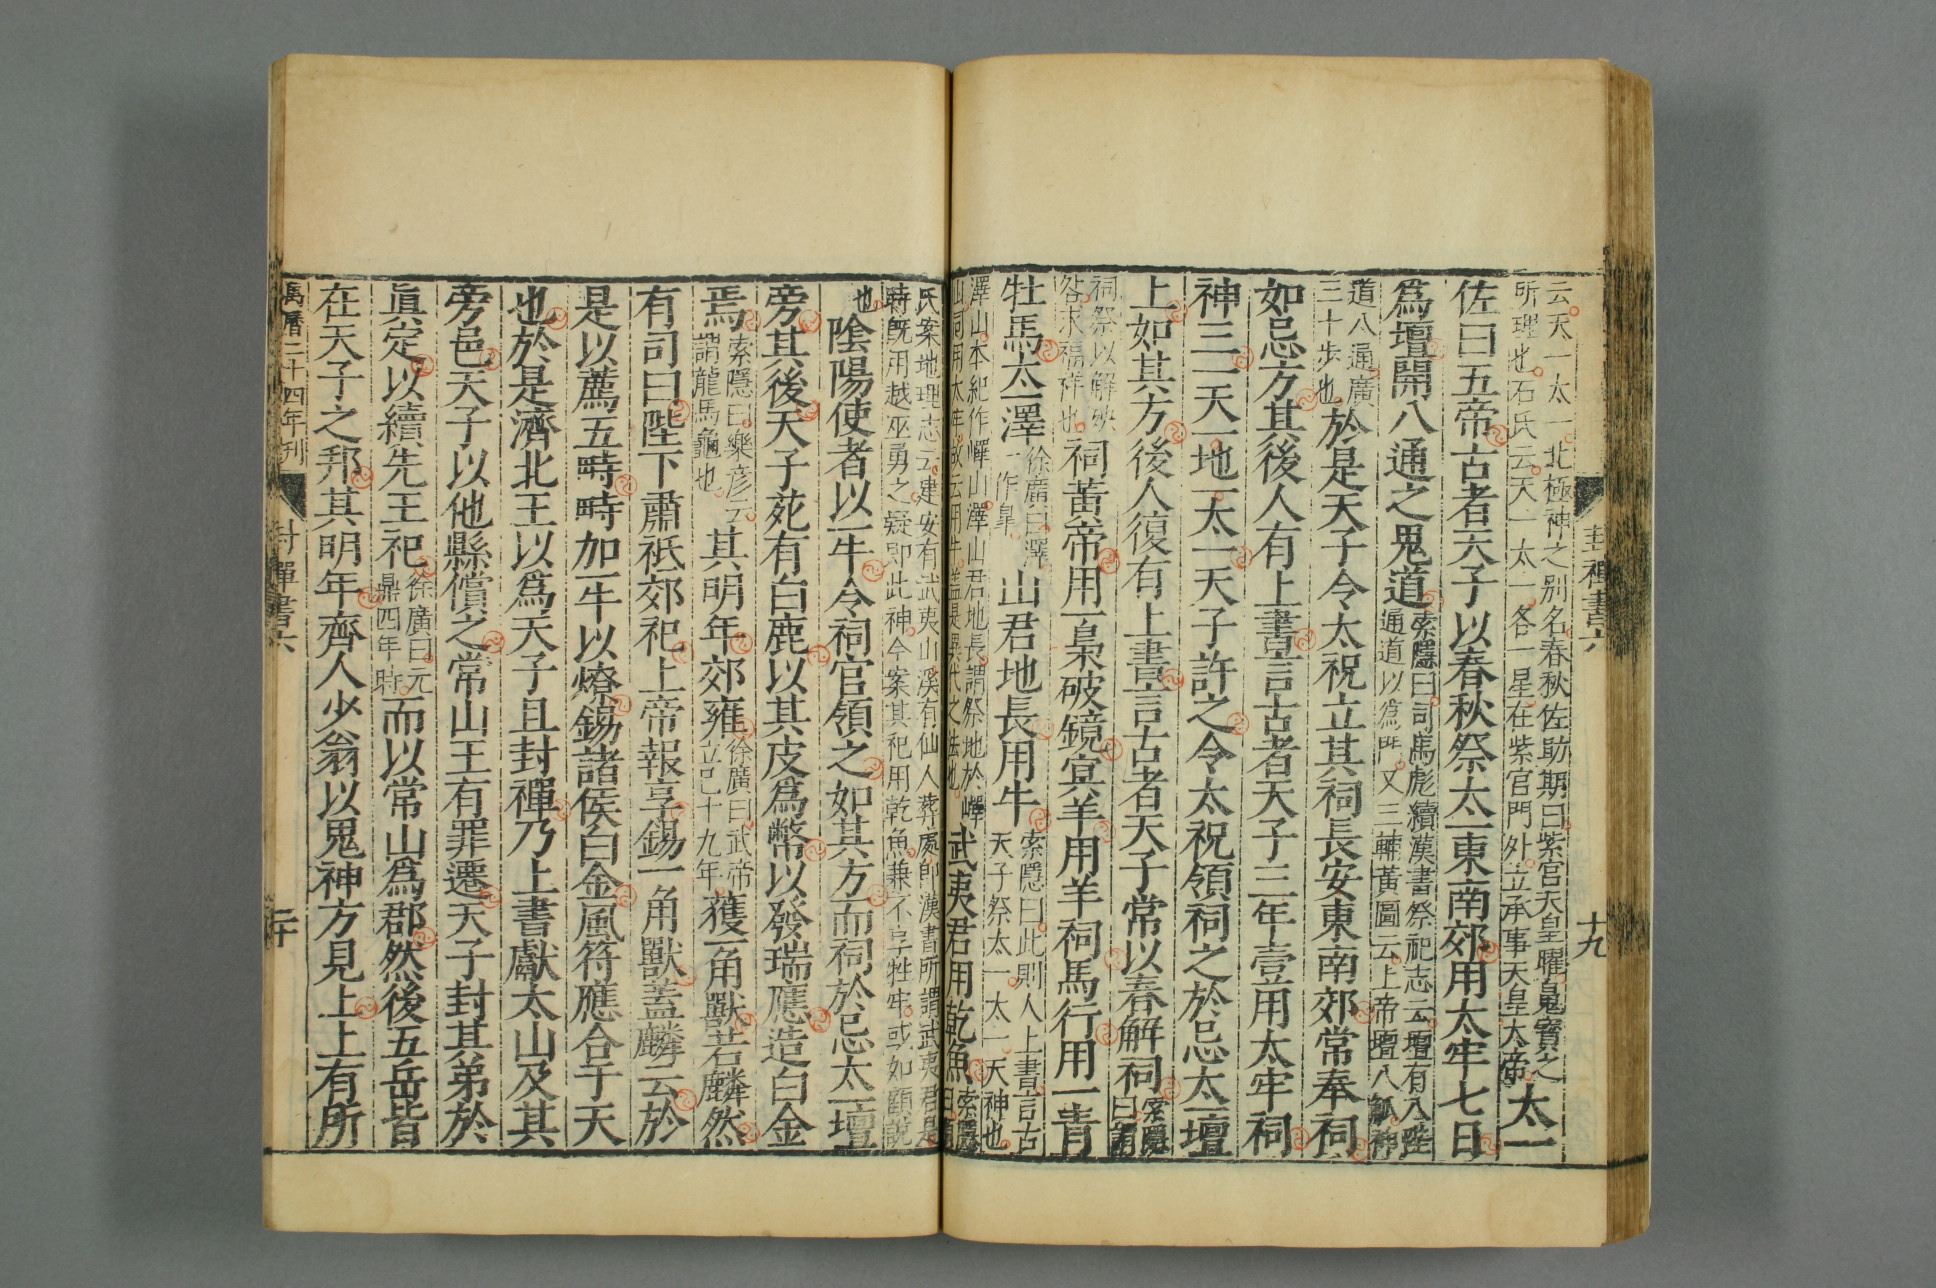 封禪書六 十九
云天一太一北極神之别名春秋佐助期曰紫宮天皇曜魄寶之
所理也石氏云天一太一各一星在紫宮門外立承事天皇大帝太一
佐曰五帝古者天子以春秋祭太一東南郊用太牢七日
爲壇開八通之鬼道索隱曰司馬彪續漢書祭祀志云壇有八陛
通道以爲門又三輔黃圖云上帝壇八觚神
道八通廣
三十步也於是天子令太祝立其祠長安東南郊常奉祠
如忌方其後人有上書言古者天子三年壹用太牢祠
神三一天一地一太一天子許之令太祝領祠之於忌太一壇
上如其方後人復有上書言古者天子常以春解祠索隱
曰謂
祠祭以解殃
咎求福祥也祠黃帝用一梟破鏡冥羊用羊祠馬行用一青
牡馬太一澤徐廣曰澤
一作皐山君地長用牛索隱曰此則人上書言古
天子祭太一太一天神也
澤山本紀作嶧山澤山君地長謂祭地於嶧
山同用太牢故云用牛蓋是異代之法也武夷君用乾魚索隱
曰顧
氏案地理志云建安有武夷山溪有仙人葬處卽漢書所謂武夷君是
時旣用越巫勇之疑卽此神今案其祀用乾魚兼不享牲牢或如顧說
也陰陽使者以一牛令祠官領之如其方而祠於忌太一壇
旁其後天子苑有白鹿以其皮爲幣以發瑞應造白金
焉索隱曰樂彦云
謂龍馬龜也其明年郊雍徐廣曰武帝
立已十九年獲一角獸若麟然
有司曰陛下肅祗郊祀上帝報享錫一角獸蓋麟云於
是以薦五畤畤加一牛以燎錫諸侯白金風符應合于天
也於是濟北王以爲天子且封禪乃上書獻太山及其
旁邑天子以他縣償之常山王有罪遷天子封其弟於
眞定以續先王祀徐廣曰元
鼎四年時而以常山爲郡然後五岳皆
在天子之邦其明年齊人少翁以鬼神方見上上有所
萬曆二十四年刊 封禪書六 二十